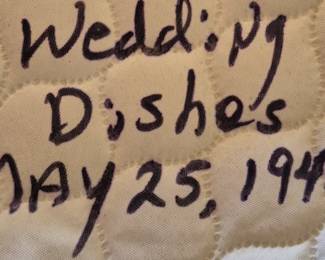 Wedding
Dishes
MAY 25, 194